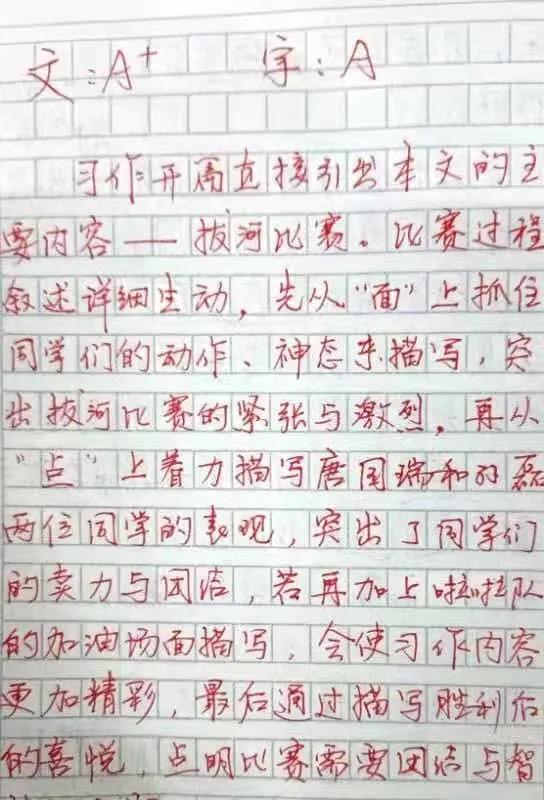 文：A+ 字：A
习作开篇直接引出本文的主
要内容——拔河比赛。比赛过程
叙述详细生动，先从“面”上抓住
同学们的动作、神态来描写，突
出拔河比赛的紧张与激烈，再从
“点”上着力描写唐国瑞和孙磊
两位同学的表现，突出了同学们
的卖力与团结，若再加上啦啦队
的加油场面描写，会使习作内容
更加精彩，最后通过描写胜利后
的喜悦，点明比赛需要团结与智